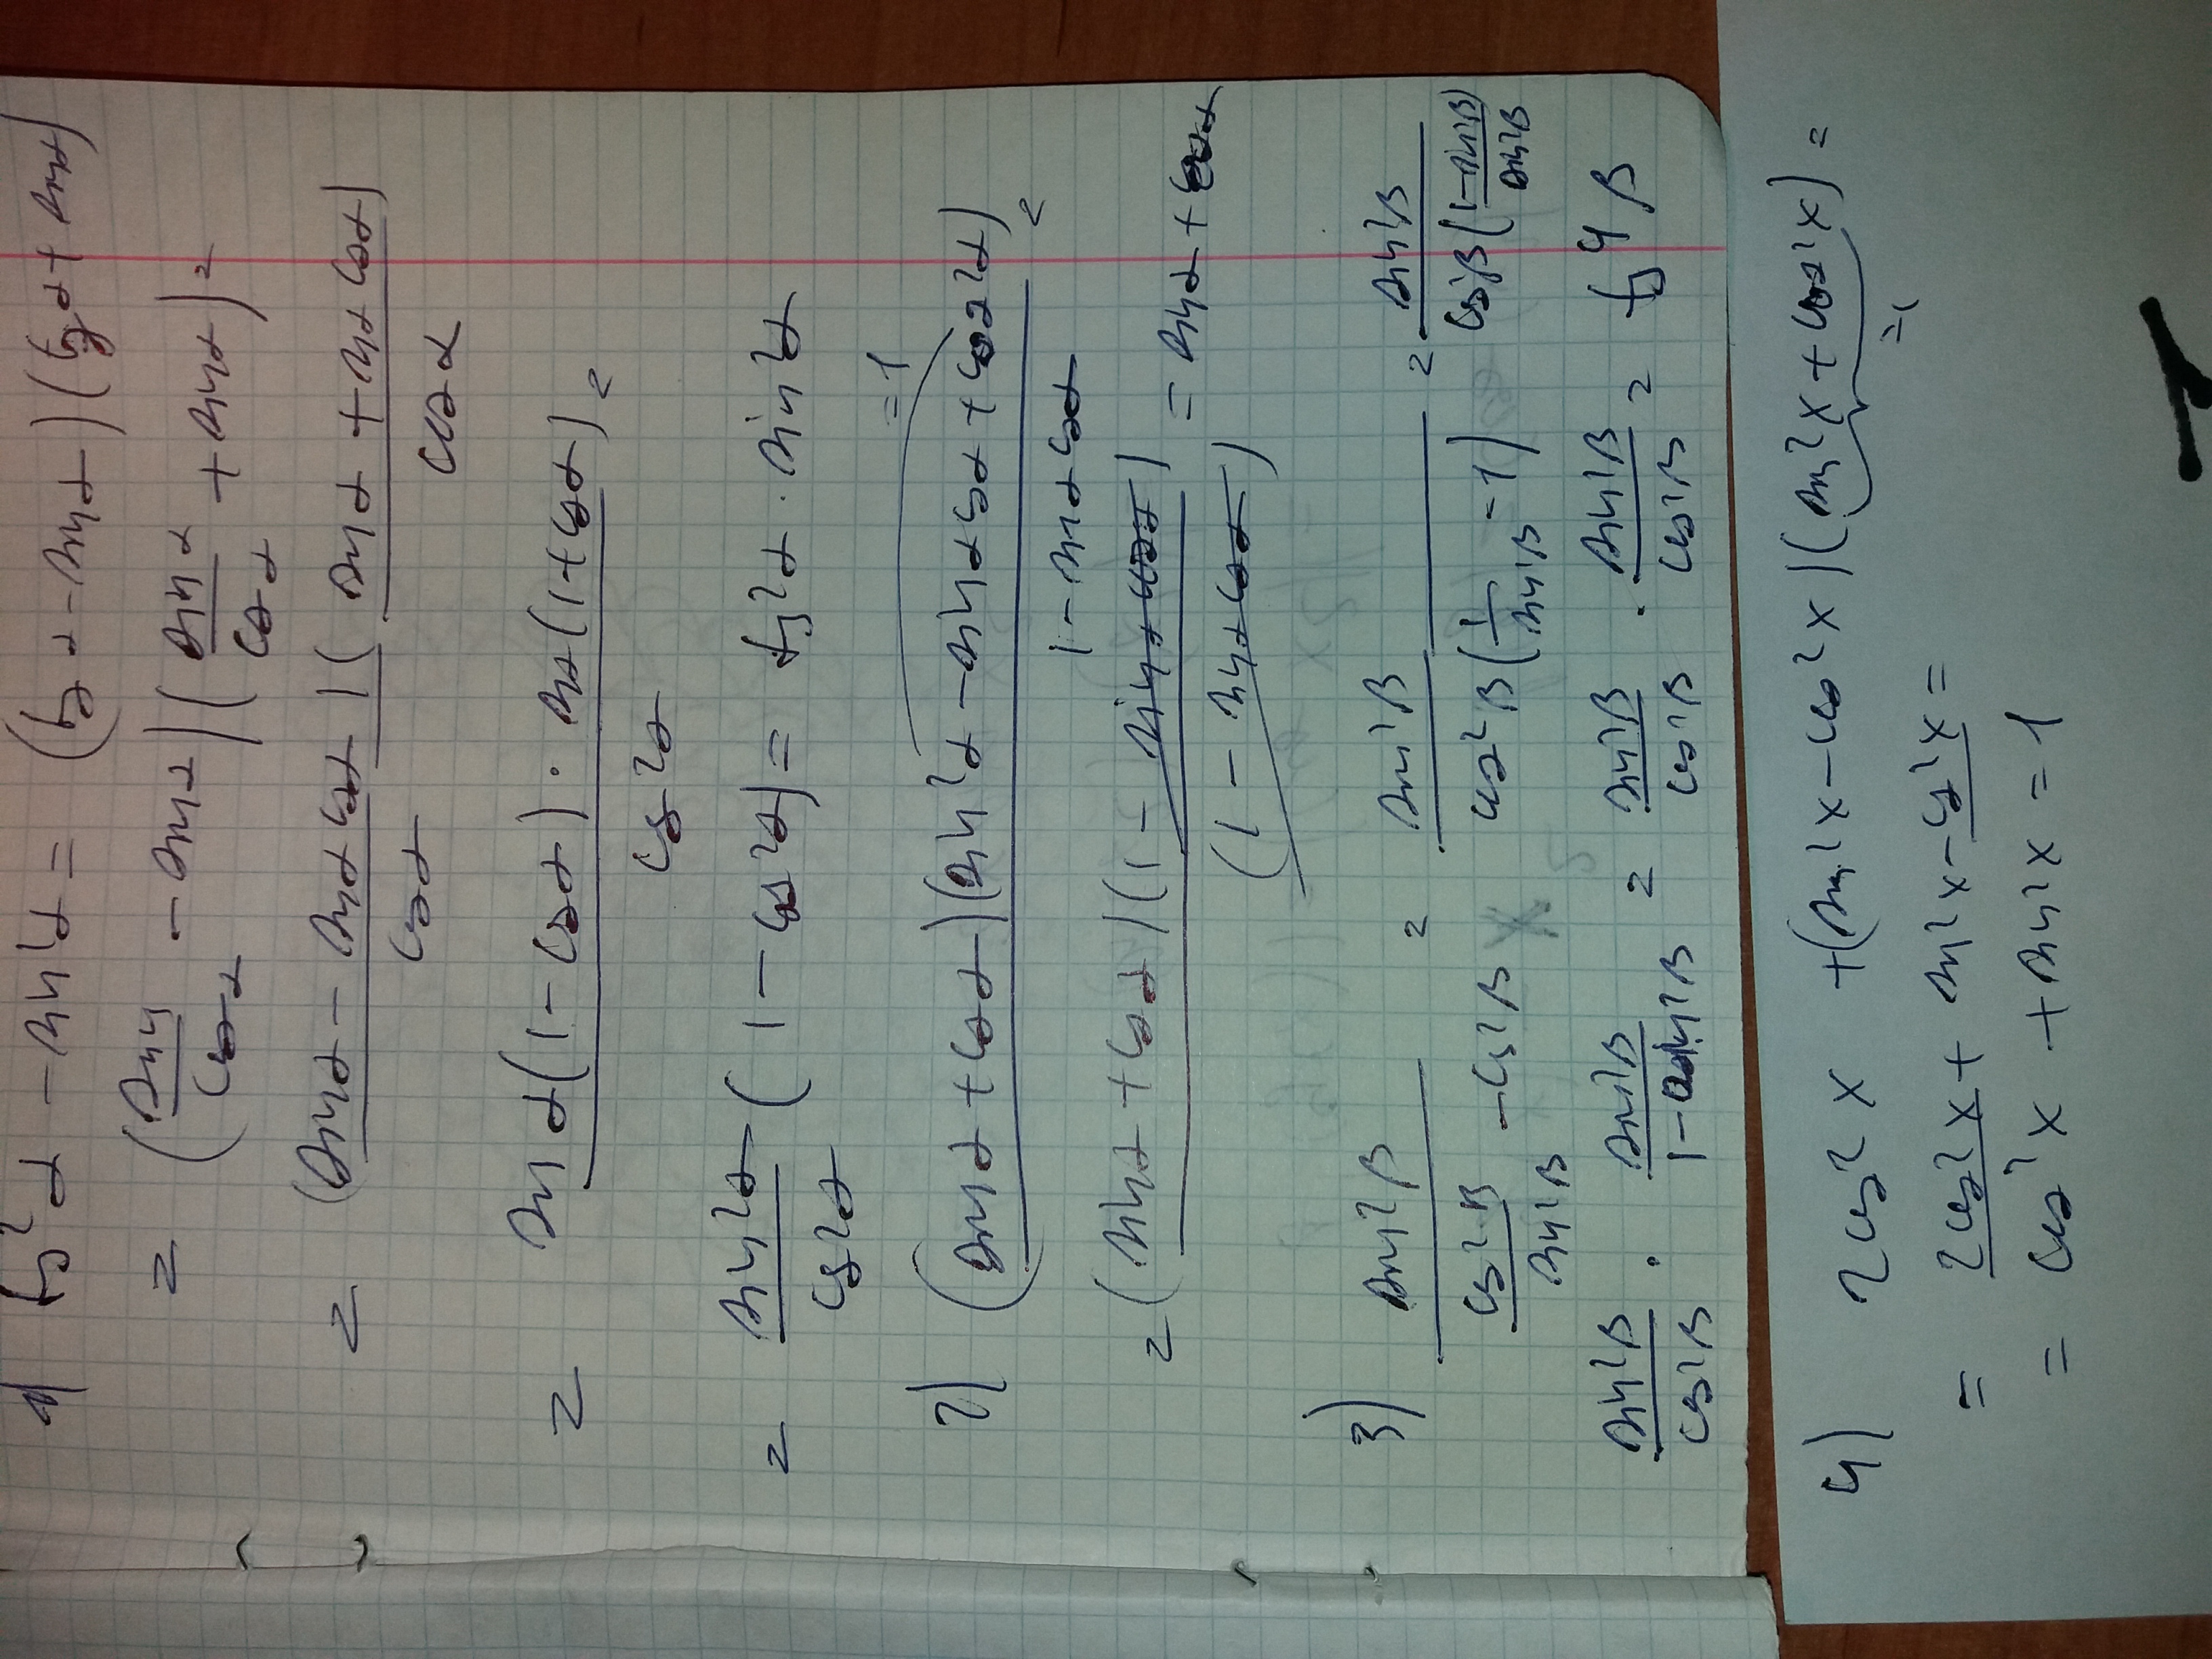 1) tg²α - sin²α = (tgα - sinα)(tgα + sinα)
= (sin/cosα - sinα)(sinα/cosα + sinα) =
= (sinα - sinα cosα)/cosα (sinα + sinα cosα)/cosα
= sinα(1 - cosα) · sinα(1 + cosα)/cos²α =
= sin²α/cos²α (1 - cos²α) = tg²α · sin²α
2) (sinα + cosα)(sin²α - sinα cosα + cos²α)/1 - sinα cosα =
= 1
= (sinα + cosα)(1 - sinα cosα)/(1 - sinα cosα) = sinα + cosα
3) sin²β/(cos²β/sin²β - cos²β) = sin²β/cos²β(1/sin²β - 1) = sin²β/cos²β((1 - sin²β)/sin²β)
sin²β/cos²β · sin²β/1 - sin²β = sin²β/cos²β · sin²β/cos²β = tg⁴β
4) 2cos²x + (sin²x - cos²x)(sin²x + cos²x) =
=1
= 2cos²x + sin²x - cos²x =
= cos²x + sin²x = 1